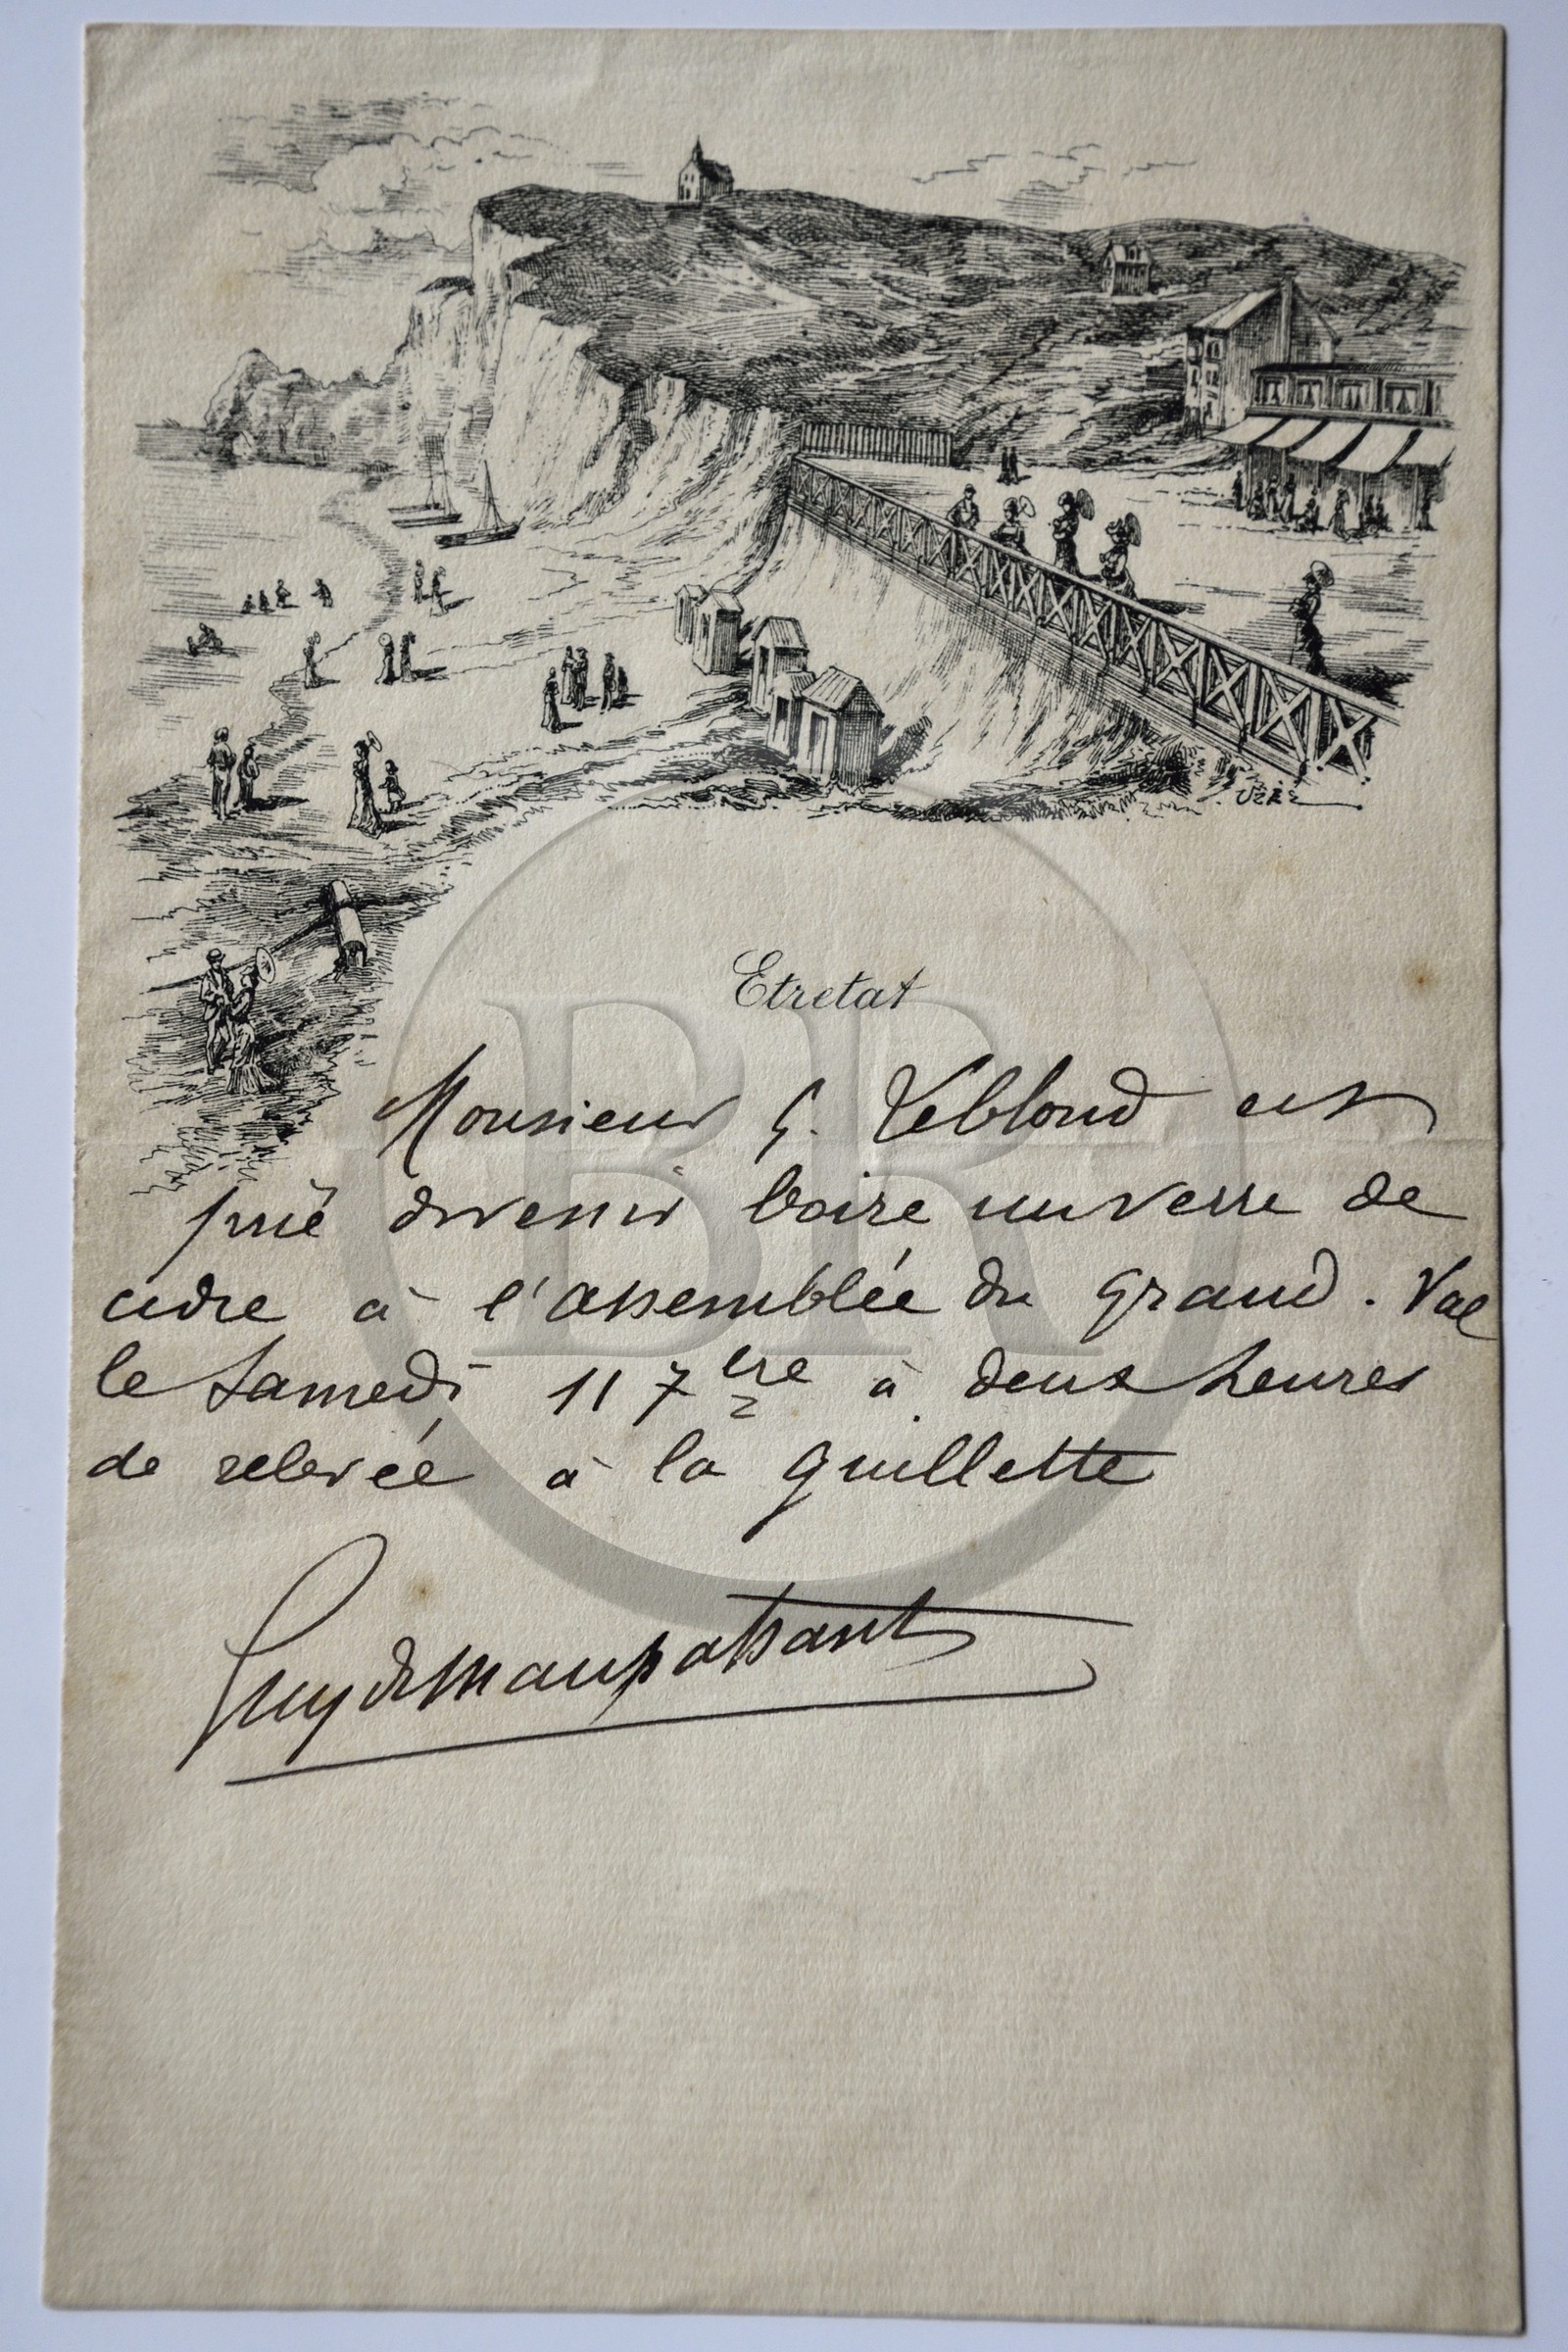 Etretat
Monsieur G. Leblond est
prié de venir boire un verre de
cidre à l'assemblée du Grand-Val
le Samedi 11 7bre à deux heures
de relevée à la Guillette
Guy de Maupassant
BR